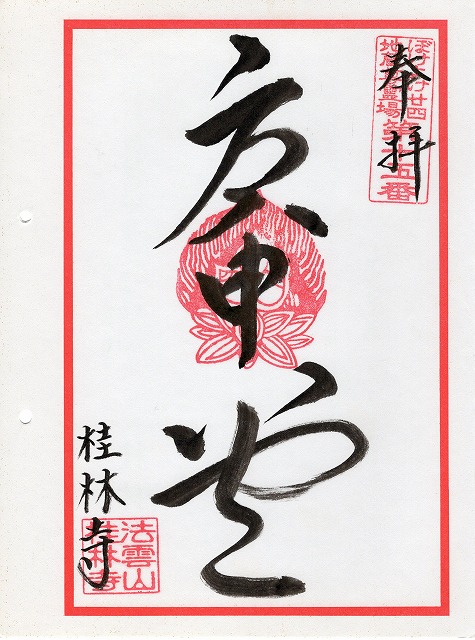 奉拝
ぼけよけ廿四
地蔵尊霊場
第十五番
庚申堂
桂林寺
法雲山
桂林寺